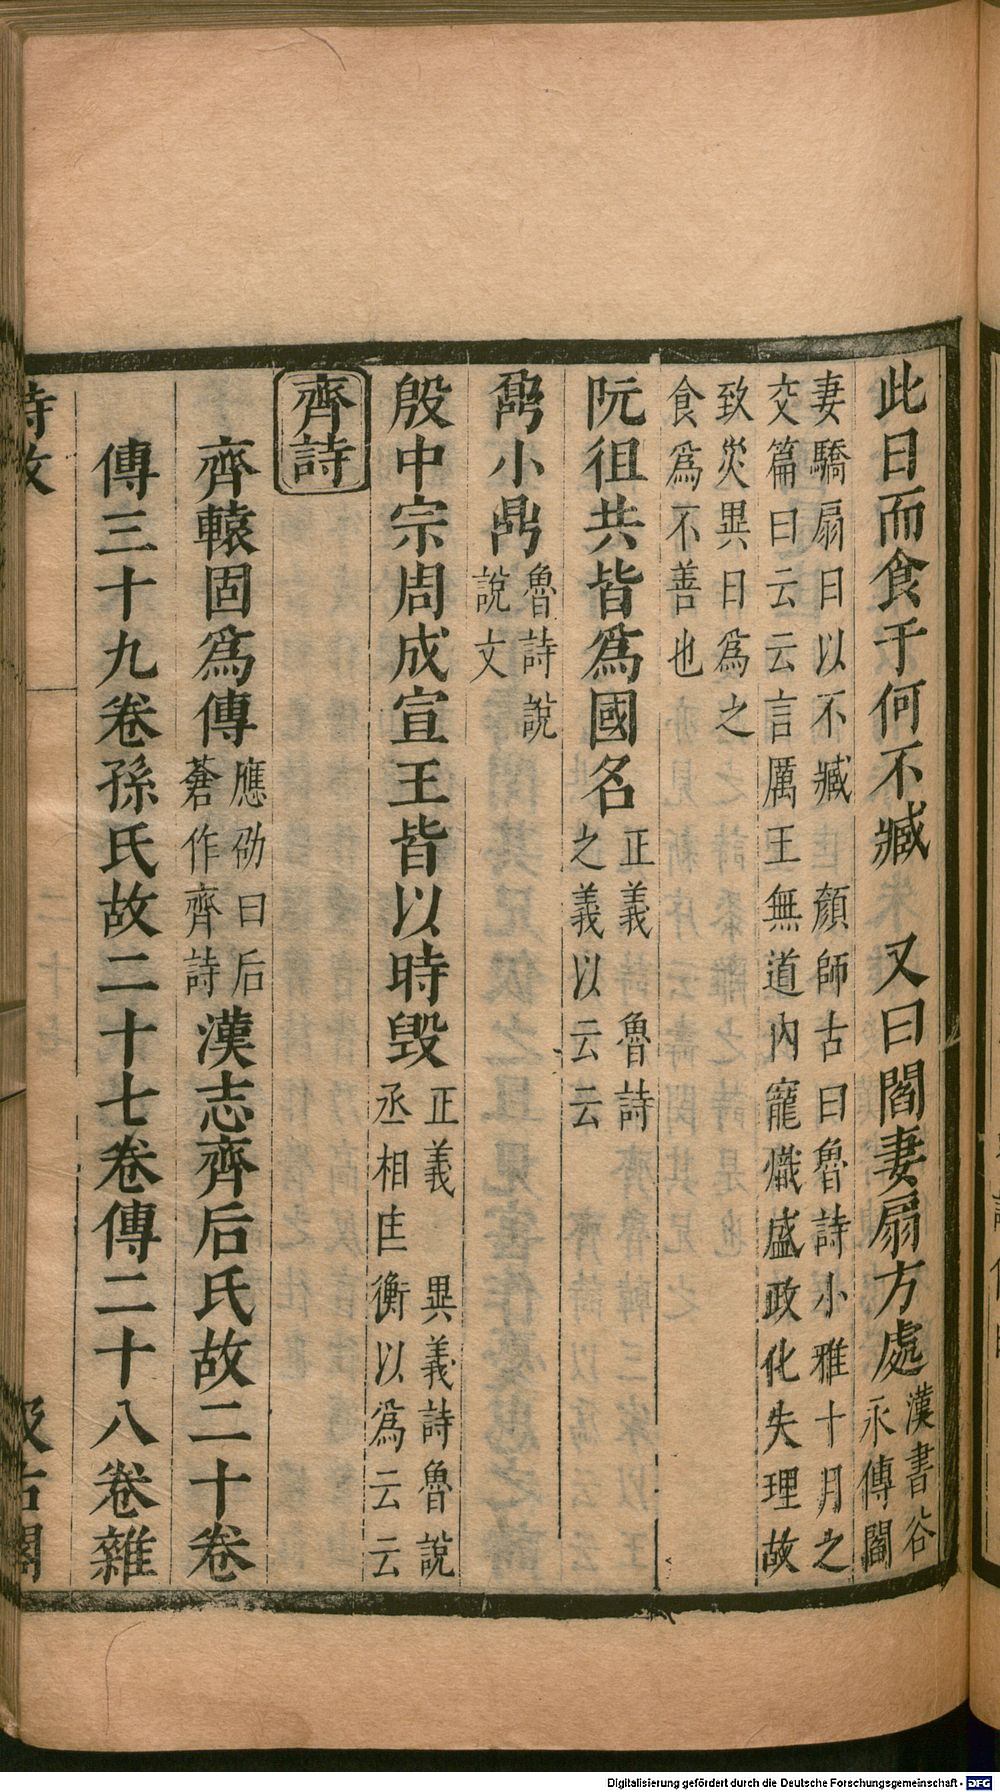 此日而食于何不臧　又曰閻妻扇方處漢書谷永傳閻
妻驕扇日以不臧　顏師古曰魯詩小雅十月之
交篇曰云云言厲王無道內寵熾盛政化失理故
致災異日爲之
食爲不善也
阮徂共皆爲國名正義　魯詩之義以云云
鼐小鼎魯詩說說文
殷中宗周成宣王皆以時毀正義　異義詩魯說丞相匡衡以爲云云
齊詩
齊轅固爲傳應劭曰后蒼作齊詩漢志齊后氏故二十卷
傳三十九卷孫氏故二十七卷傳二十八卷雜
詩攷
汲古閣
Digitalisierung gefördert durch die Deutsche Forschungsgemeinschaft - DFG